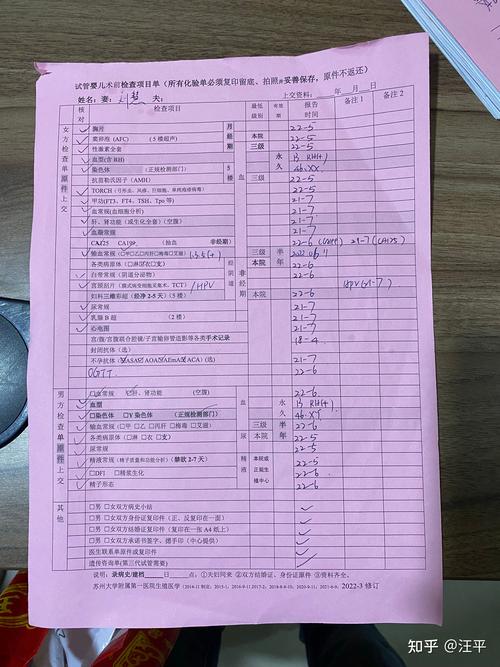 试管婴儿术前检查项目单(所有化验单必须复印留底、拍照并妥善保存,原件不退还)
姓名:妻: 夫: 上交资料: 年 月 日
核对 检查项目 最低级别 有效期 报告时间 备注1 备注2
女方检查单原件上交
胸片 月经期 22-5
窦卵泡(AFC) (5楼超声) 本院 22-5
性激素全套 三级 22-5
血型(含RH) 5楼 血 永久 B RH(+)
染色体 (正规检测部门) 46.XX
抗苗勒氏因子(AMH) 三级 22-5
TORCH(弓形虫、风疹、巨细胞、单纯疱疹病毒) 22-5
甲功(FT3、FT4、TSH、Tpo等) 21-7
血常规(血细胞分析) 21-7
肝、肾功能(或生化全套)(空腹) 21-7
血凝常规 21-7
CA125 CA199 (抽血 非经期) 22-6 21-7 (CA125)
输血常规(□甲□乙□丙肝□梅毒□艾滋) 三级 半年 2022.06.11
各类病原体(□淋□衣□支) 经阴道 非经期 本院 22-6
白带常规(阴道分泌物) 22-6
宫颈刮片(膜式病变细胞采集术、TCT) /HPV HPV(21-7)
妇科三维彩超(经净2-5天)(5楼) 本院 22-6
尿常规 21-7
乳腺B超 (2楼) 21-7
心电图 21-7
宫/腹/宫腹联合腔镜/子宫输卵管造影等各类手术记录 18-4
封闭抗体(选)
不孕抗体(ASA AOA AEmA ACA)(选) 21-7
OGTT 22-6
男方检查单原件上交
□血常规 肝、肾功能 (空腹) 血 22-6
血型 永久 B RH(+)
□染色体 □Y染色体 (正规检测部门) 46.XY
输血常规(□甲□乙□丙肝□梅毒□艾滋) 三级 半年 22-6
各类病原体(□淋□衣□支) 尿 本院 22-5
尿常规 22-5
精液常规(精子质量和功能分析)(禁欲2-7天) 精液 本院或正规生殖中心 22-5
□DFI □精浆生化 22-6
精子形态 22-6
其他
□男 □女双方病史小结
□男 □女双方身份证复印件(正、反复印在一面)
□男 □女双方结婚证复印件(复印在一张A4纸上)
□男 □女双方承诺书签字、摁手印(中心提供)
医生联系单原件或复印件
遗传咨询单(第三代试管需要)
说明:录病史/建档 日 点:①夫妇同来 ②双方结婚证、身份证原件 ③资料齐全。
苏州大学附属第一医院生殖医学 2022-3修订
知乎 @汪平